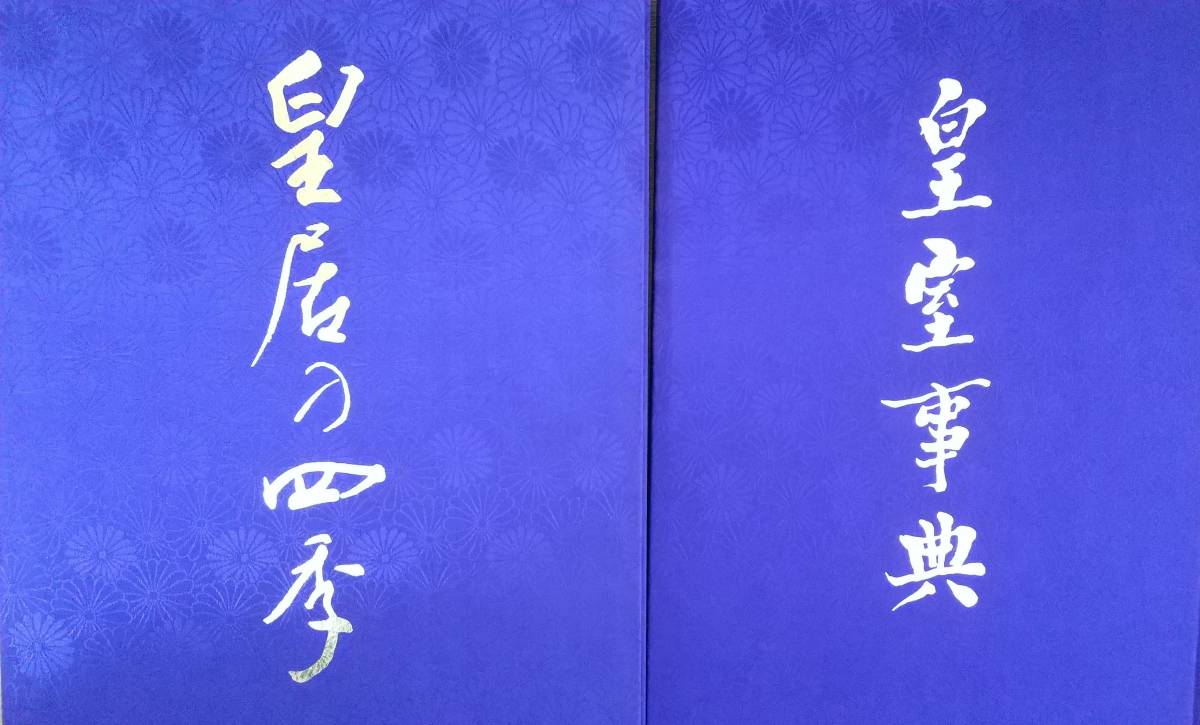 皇居の四季
皇室事典